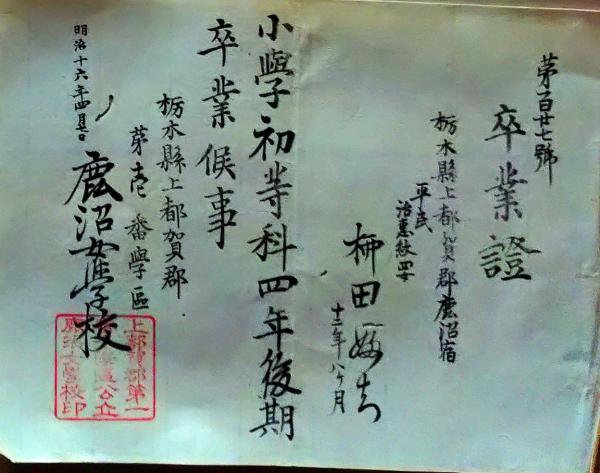 第百廿七號
卒業證
栃木縣上都賀郡鹿沼宿
平民
柳田
十二年八ヶ月
小學初等科四年後期
卒業候事
栃木縣上都賀郡
第壱番學區
鹿沼女學校
明治十六年四月
上都賀郡第一
公立
鹿沼女學校印